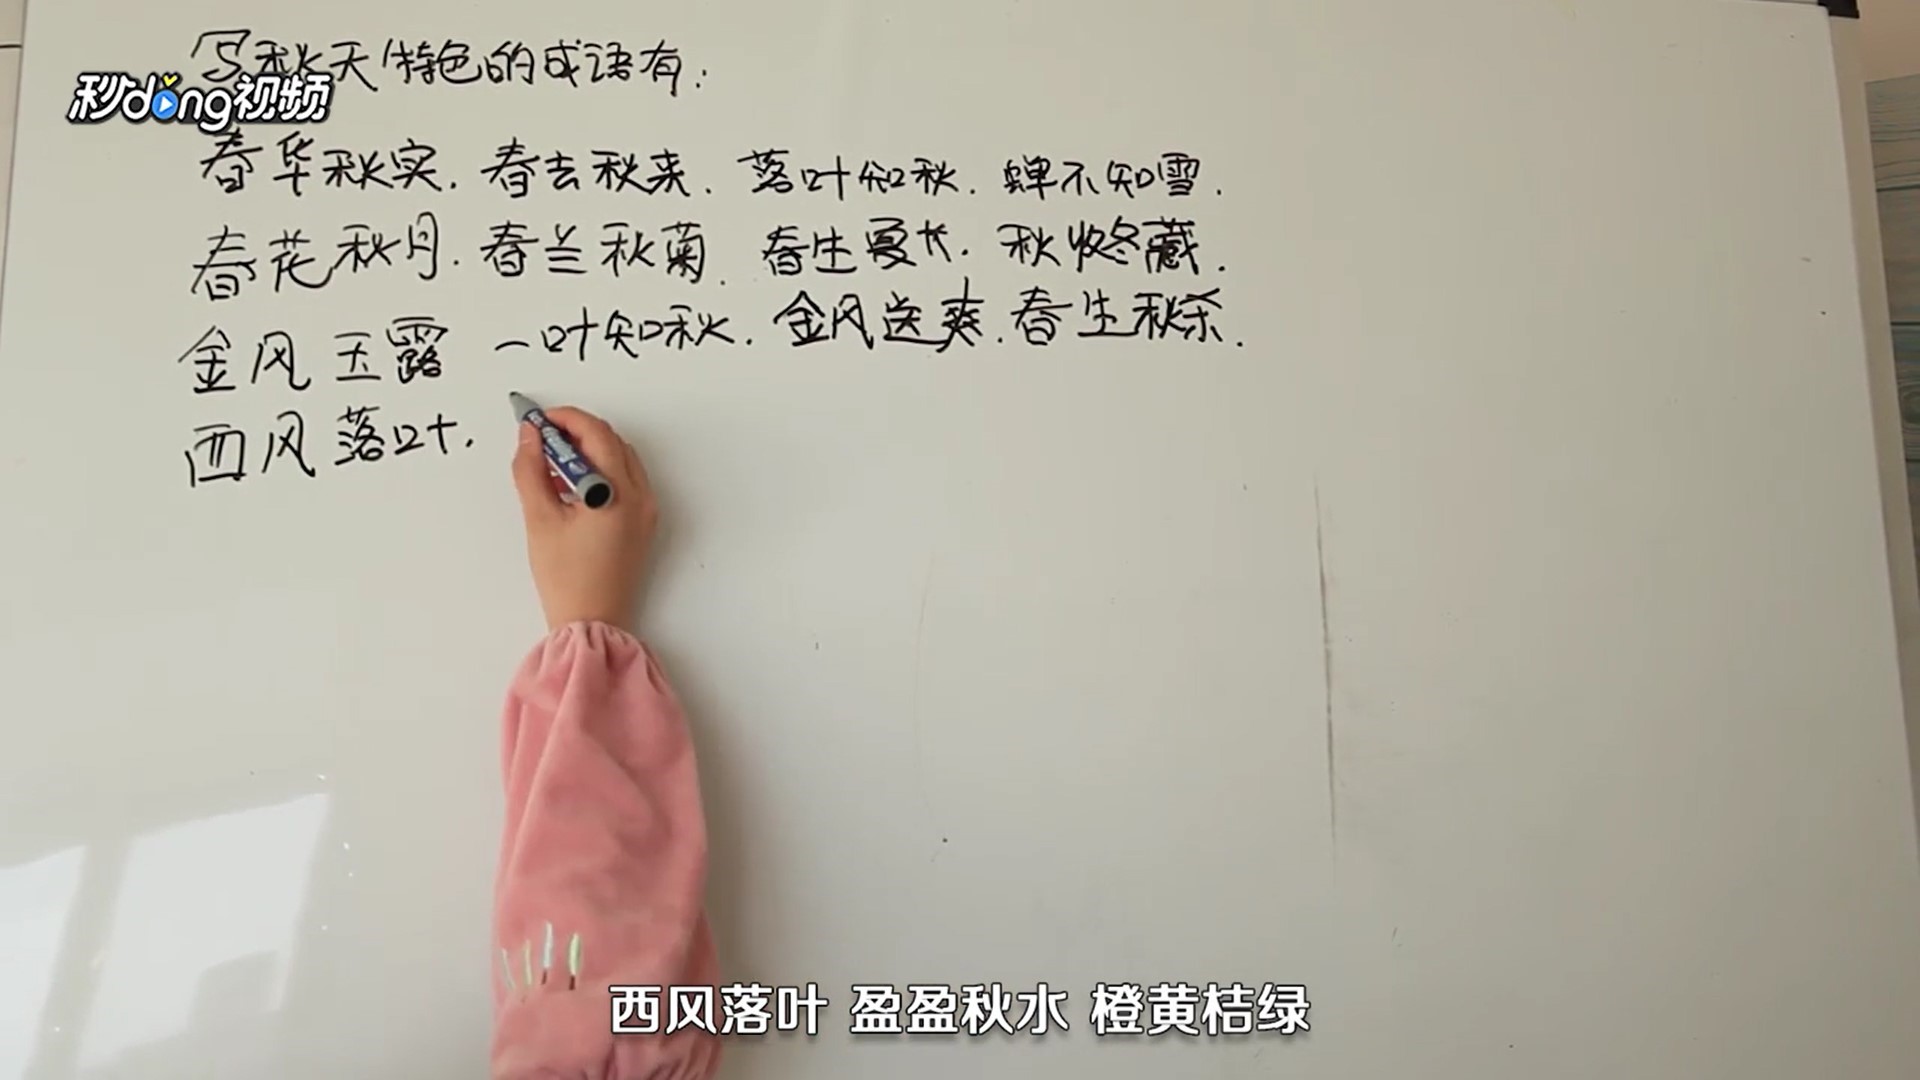 写秋天特色的成语有:
秒dong视频
春华秋实. 春去秋来. 落叶知秋. 蝉不知雪.
春花秋月. 春兰秋菊. 春生夏长. 秋收冬藏.
金风玉露 一叶知秋. 金风送爽. 春生秋杀.
西风落叶.
西风落叶 盈盈秋水 橙黄桔绿